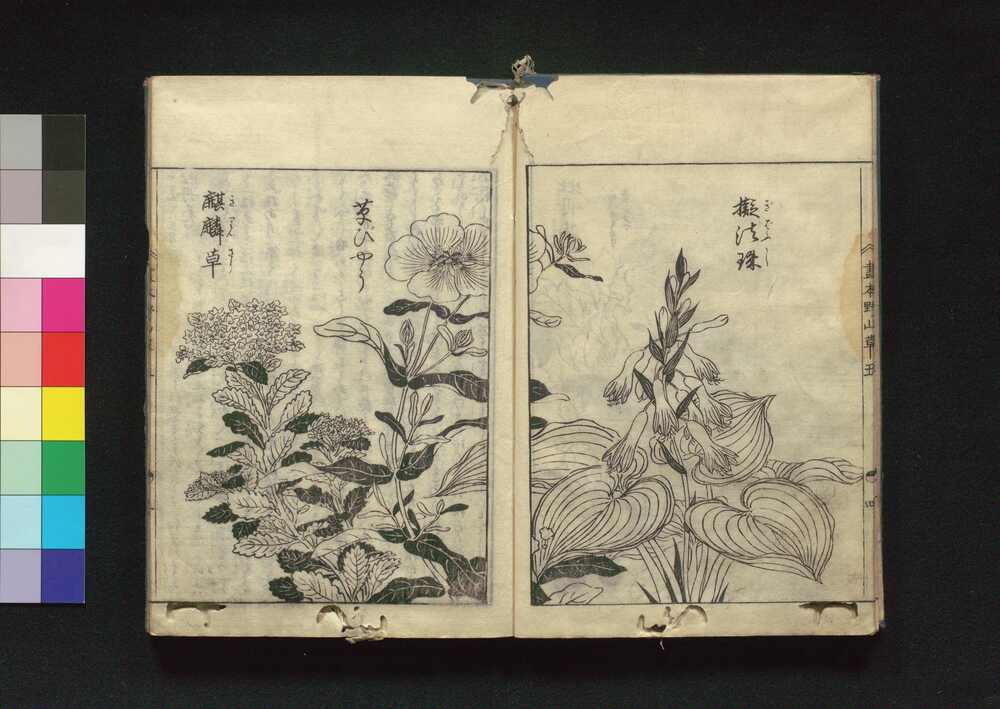 畫本野山草五
四
擬法珠
ぎぼふし
草びやう
麒麟草
きりんさう